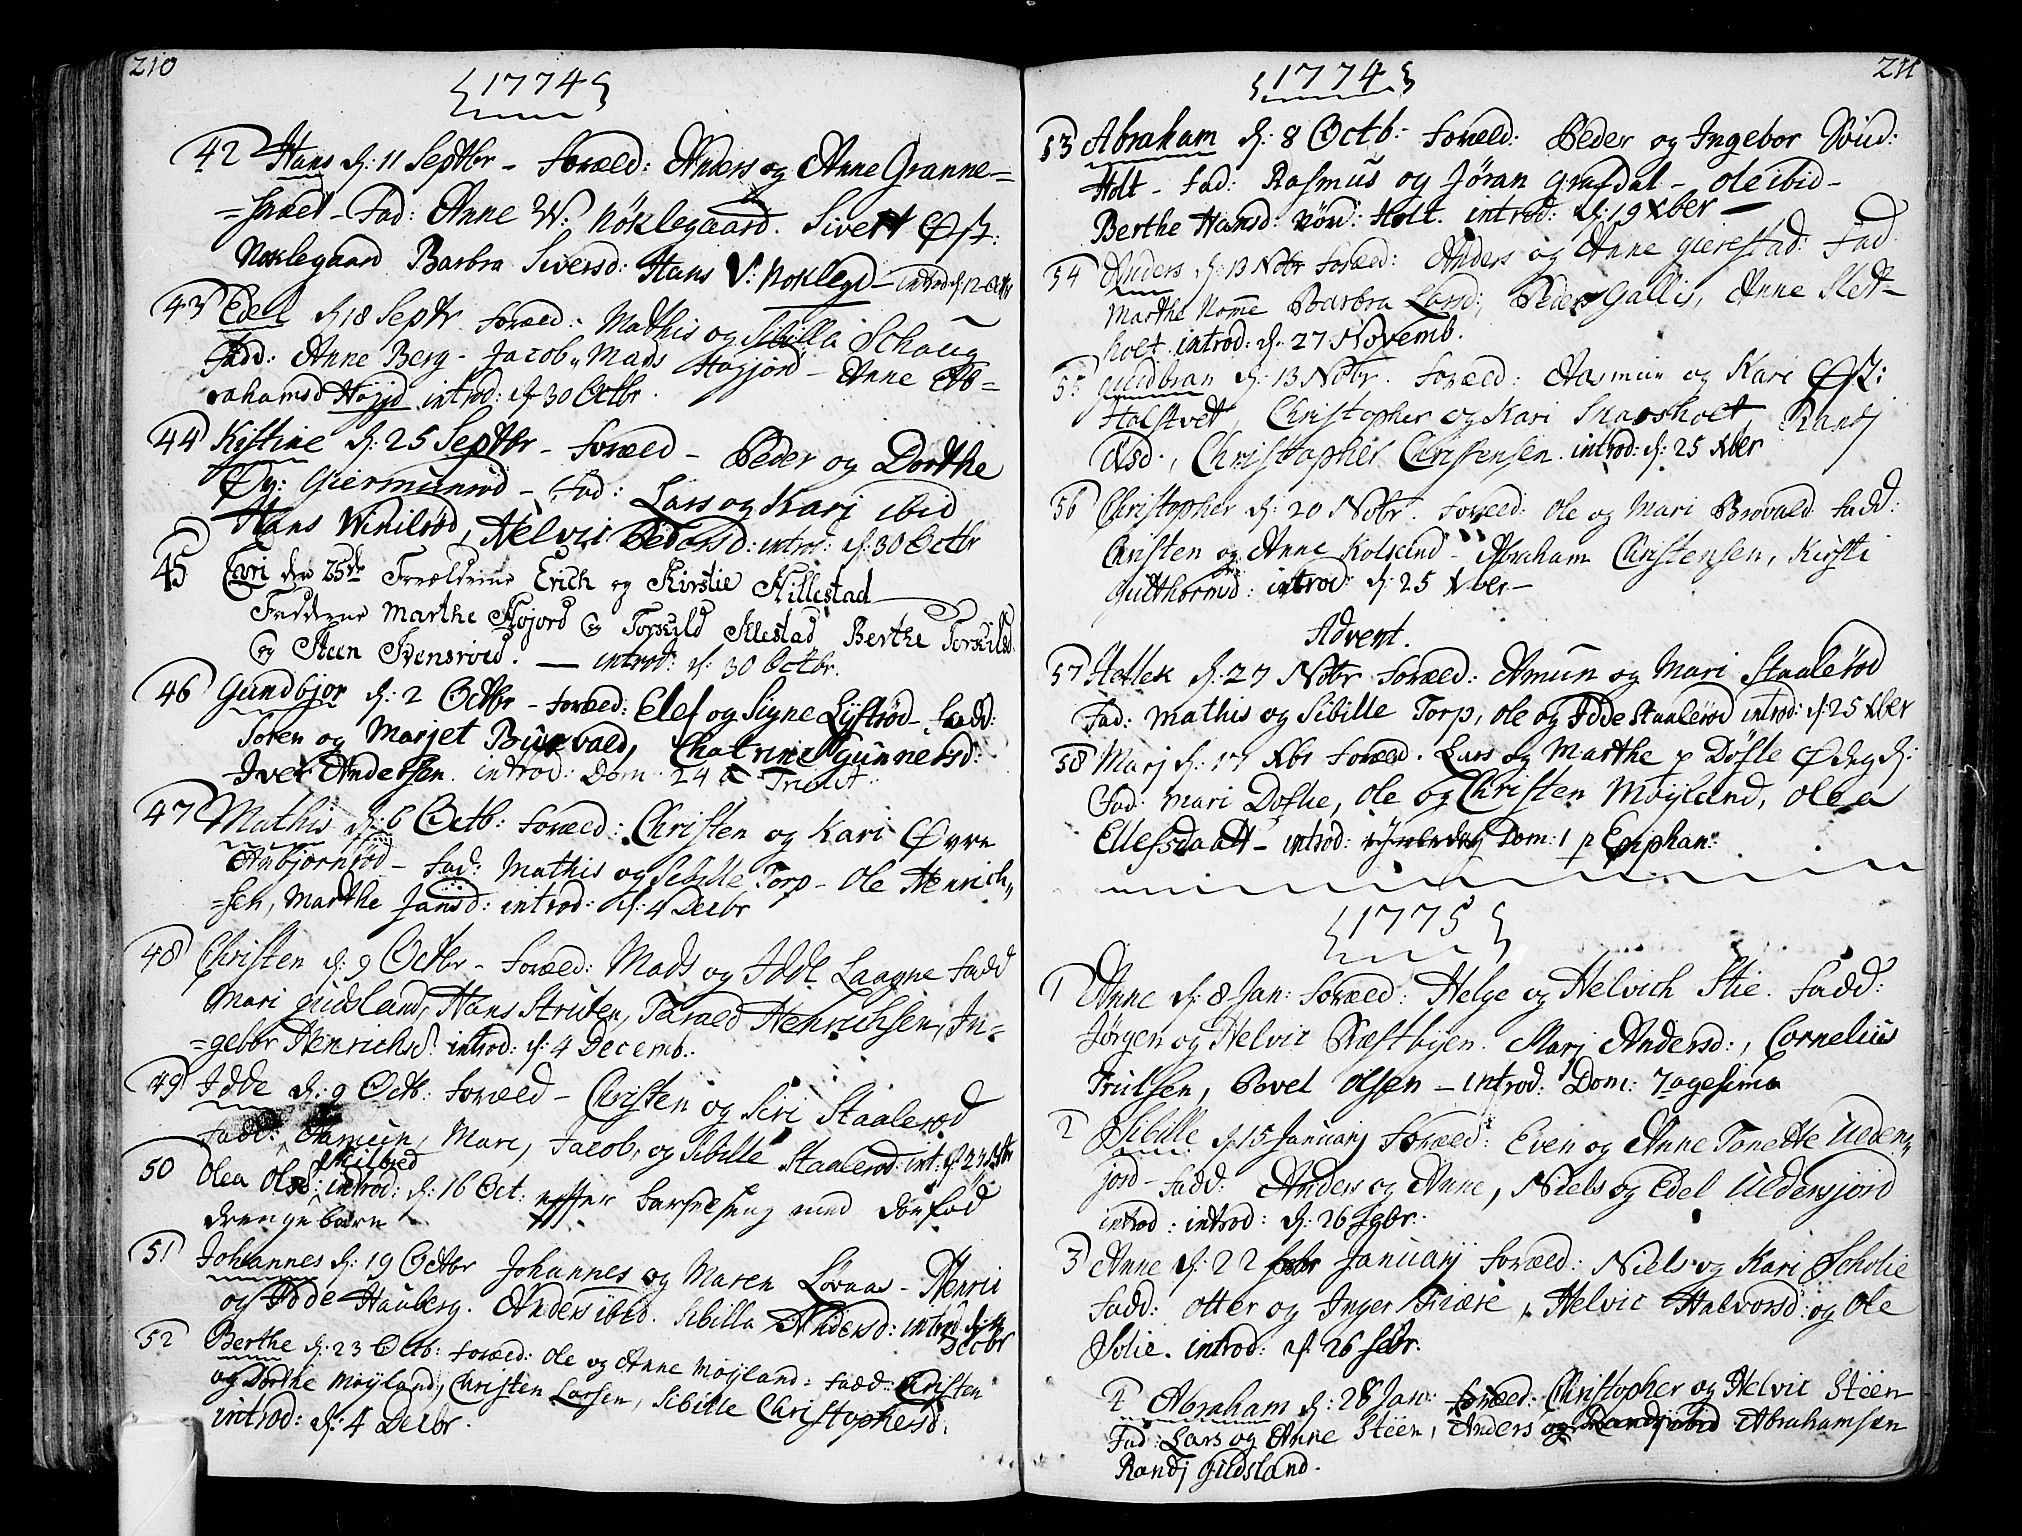 210
1774
42 Hans d: 11 Septbr - Foræld: Anders og Anne Granne=
=snæel - Fad: Anne W: Nöklegaard. Sivert Øst:
Noklegaard Barbra Siversd: Hans V: Noklegd - introd d: 12 Octbr
43 Edel d 18 Septr Foræld: Mathis og Sibilla Schaug
Fadd: Anne Berg - Jacob, Mads Hogjord - Anne Ab=
rahamsd Högjd introd: d. 30 Octbr.
44 Kistine d: 25 Septbr - Foræld - Peder og Dorthe
Øy: Giermunrød - Fad: Lars og Kari ibid
Hans Winilrød, Helvic Pedersd: introd: d. 30 Octbr
45 Cari den 25de Forældrene Erich og Kirstie Hillestad
Fadderne Marthe Hojord og Torkild Illestad Berthe Torkilsd
og Steen Svensroed. — introd: d: 30 Octbr.
46 Gundbjør d: 2 Octbr - Foræd: Elef og Signe Lystrød - Fadd:
Soren og Marjet Burvald, Chatrine Gunnersd:
Iver Andersen. introd: Dom. 24 a Trinit:
47 Mathis d: 6 Octb: Foræld: Christen og Kari Øvre
Aubjornrød - Fad: Mathis og Sibille Torp - Ole Henrich=
=sen, Marthe Jansd: introd: d. 4 Decbr
48 Christen d: 9 Octbr - Foræld: Mads og Idde Laagne Fadd
Mari Gudsland, Hans Struten, Tarald Henrichsen, In=
=gebor Henrichsd: introd: d. 4 Decemb.
49 Idde d: 9 Octb: Foræld - Christen og Siri Staalerød
Fadd: Aamun, Mari, Jacob, og Sibille Staalerød: int: d. 27 Nbr
50 Olea Olsd: Skilbred introd: d: 16 Oct: effter barselseng med dønfød
drengebarn
51 Johannes d: 19 Octbr Johannes og Maren Lövaas - Henric
og Idde Hauberg. Anders ibid. Sibilla Andersd: introd d: 4
Decbr
52 Berthe d: 23 Octb: Foræld: Ole og Anne Møyland: Fadd: Christen
og Dorthe Møyland, Christen Larsen, Sibille Christophersd:
introd: d: 4 Decbr.
211
1774
53 Abraham d: 8 Octb: Foræld: Peder og Ingebor Nörd:
Holt - Fad: Rasmus og Jöran Grafdal - Ole ibid -
Berthe Hansd: Nörd: Holt. introd: d: 19 Xber —
54 Anders d: 13 Nobr Foræld: Anders og Anne Gierestad: Fad
Marthe Nomme Barbra Land, Peder Gallis, Anne Slet-
holt. introd: d. 27 Novemb.
55 Gudbran d: 13 Nobr. Foræld: Aasmun og Kari Øst:
Holstvet, Christopher og Kari Snarsholt, Randj
Olsd., Christopher Christensen. introd: d: 25 Xber
56 Christopher d: 20 Nobr. Foræld: Ole og Mari Brovald. Fadd:
Christen og Anne Kolsrud - Abraham Christensen, Kirsti
Gutthormsd: introd: d: 25 Xber -
Advent.
57 Hellek d: 27 Nobr. Foræld: Amun og Mari Staalerød
Fad: Mathis og Sibille Torp, Ole og Idde Staalerød introd: d. 25 Xber
58 Marj d: 17 Xbr Foræld. Lars og Marthe p Döfle Ødegd:
Fad: Mari Dofle, Ole og Christen Møyland, Olea
Ellefsdaatt - introd: Dom: 1 p Epiphan:
1775
1 Anne d: 8 Jan: Foræld: Helge og Helvich Stie. Fadd:
Jörgen og Helvic Næstbyen. Marj Andersd:, Cornelius
Truelsen, Povel Olsen - introd: Dom: 7agesima
2 Sibille d. 15 Januarj Foræld: Even og Anne Tonette Ulden=
jord - Fadd: Anders og Anne, Niels og Edel Uldersjord
introd: introd: d: 26 Febr.
3 Anne d: 22 Januarij Foræld: Niels og Kari Scholie
Fadd: Otter og Inger Friære, Helvic Halvorsd: og Ole
Solie. introd: d: 26 Febr.
4 Abraham d: 28 Jan: Foræld: Christopher og Helvic Stëen
Fad: Lars og Anne Stëen, Anders og Randj ibid Abrahamsen
Randj Gudsland.